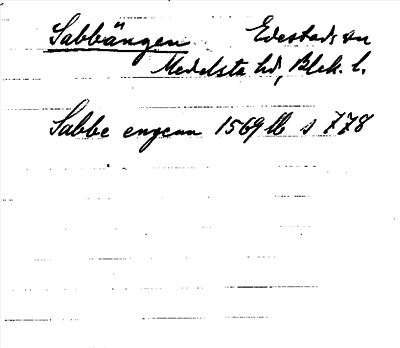 Sabbängen Edestads sn
Medelsta hd, Blek. l.
Sabbe engenn 1569 lb s 778